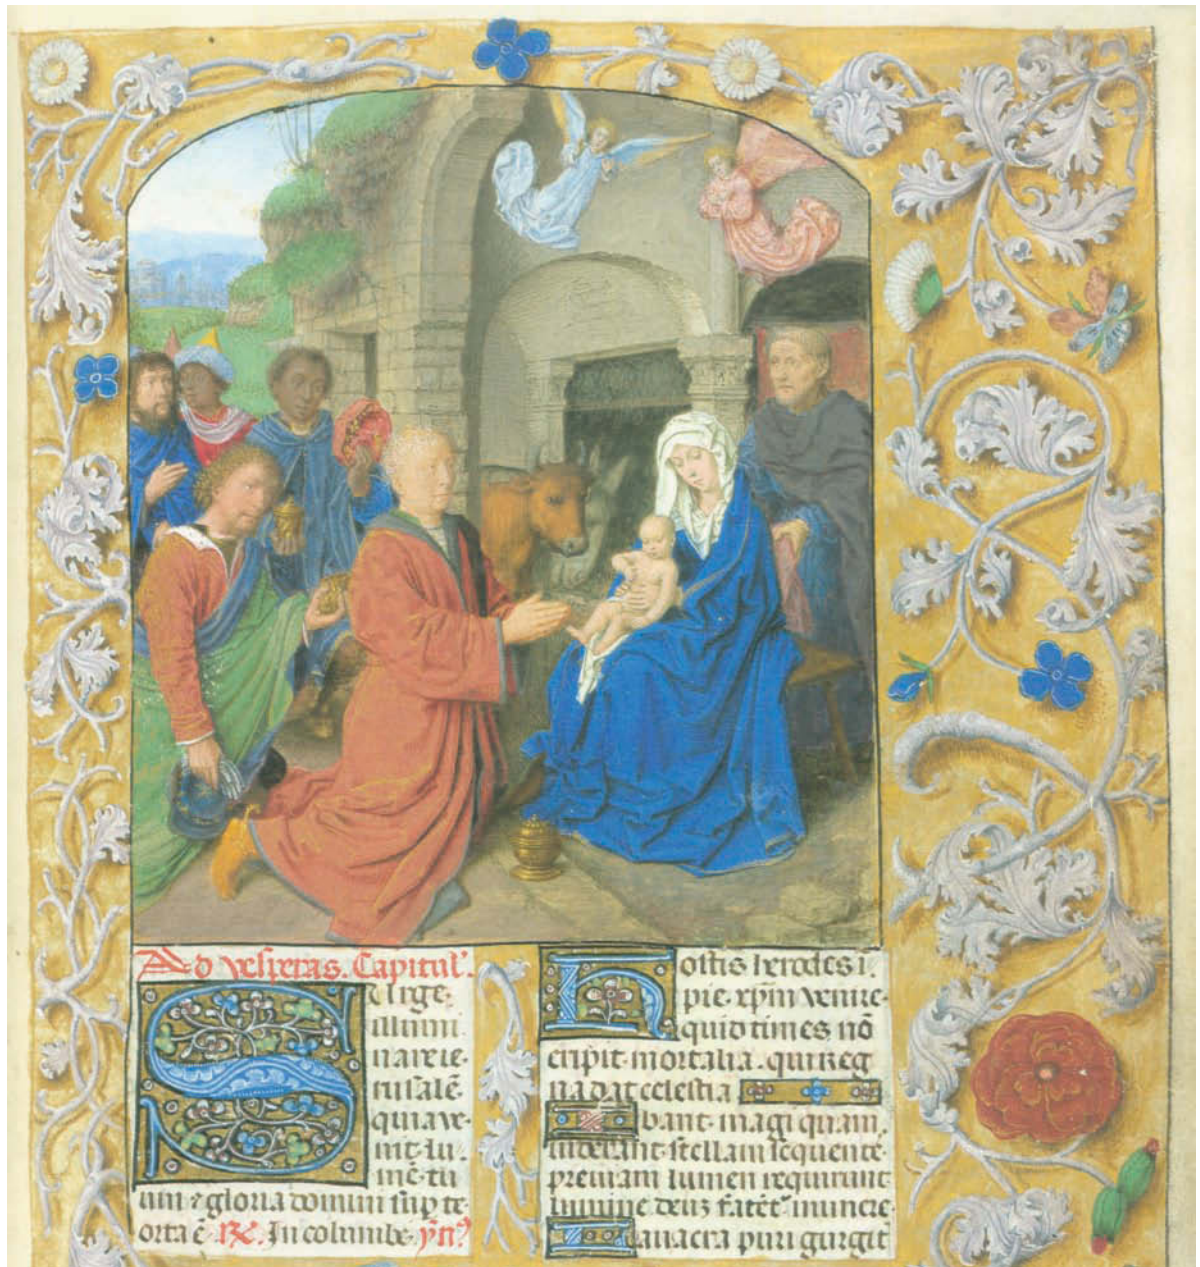 Ad vesperas. Capitul'.
Surge.
illumi
nare ie-
rusalē
quia ve-
nit lu-
mē tu
um ⁊ gloria domini sup te
orta ē. R͛. In columbe. yn̄?
Hostis herodes i.
pie. xp̄m venire.
quid times nō
eripit mortalia. qui reg
na dat celestia
Ibant magi quam
viderant stellam sequente
previam lumen requirunt
lumine deuz fatēt munere
Lavacra puri gurgit